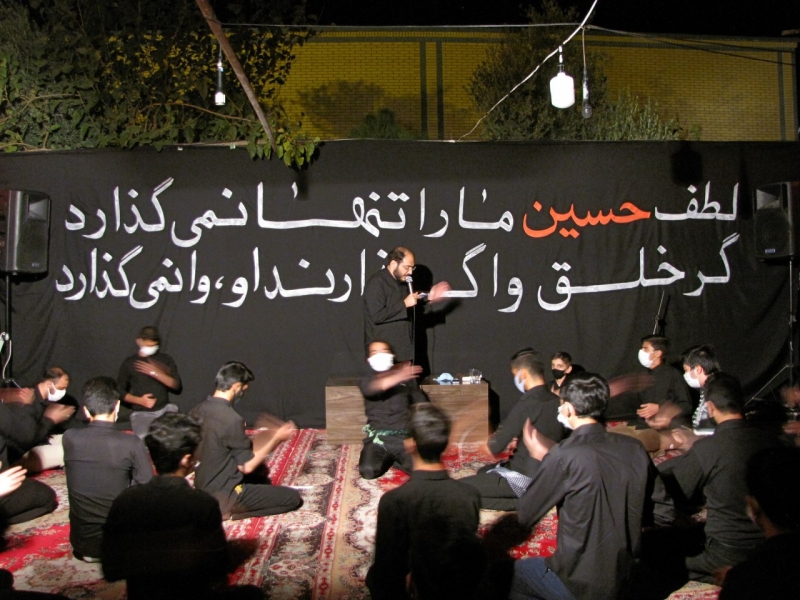 لطف حسین ما را تنها نمی‌گذارد
گر خلق واگذارند او، وا نمی‌گذارد